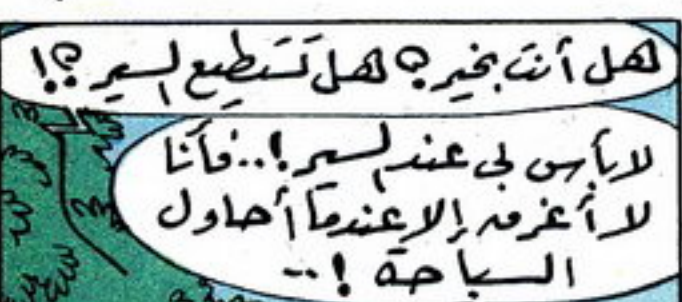 هل أنت بخير؟ هل تستطيع السير؟!
لا بأس بي عند السير!.. فأنا
لا أغرق إلا عندما أحاول
السباحة!..